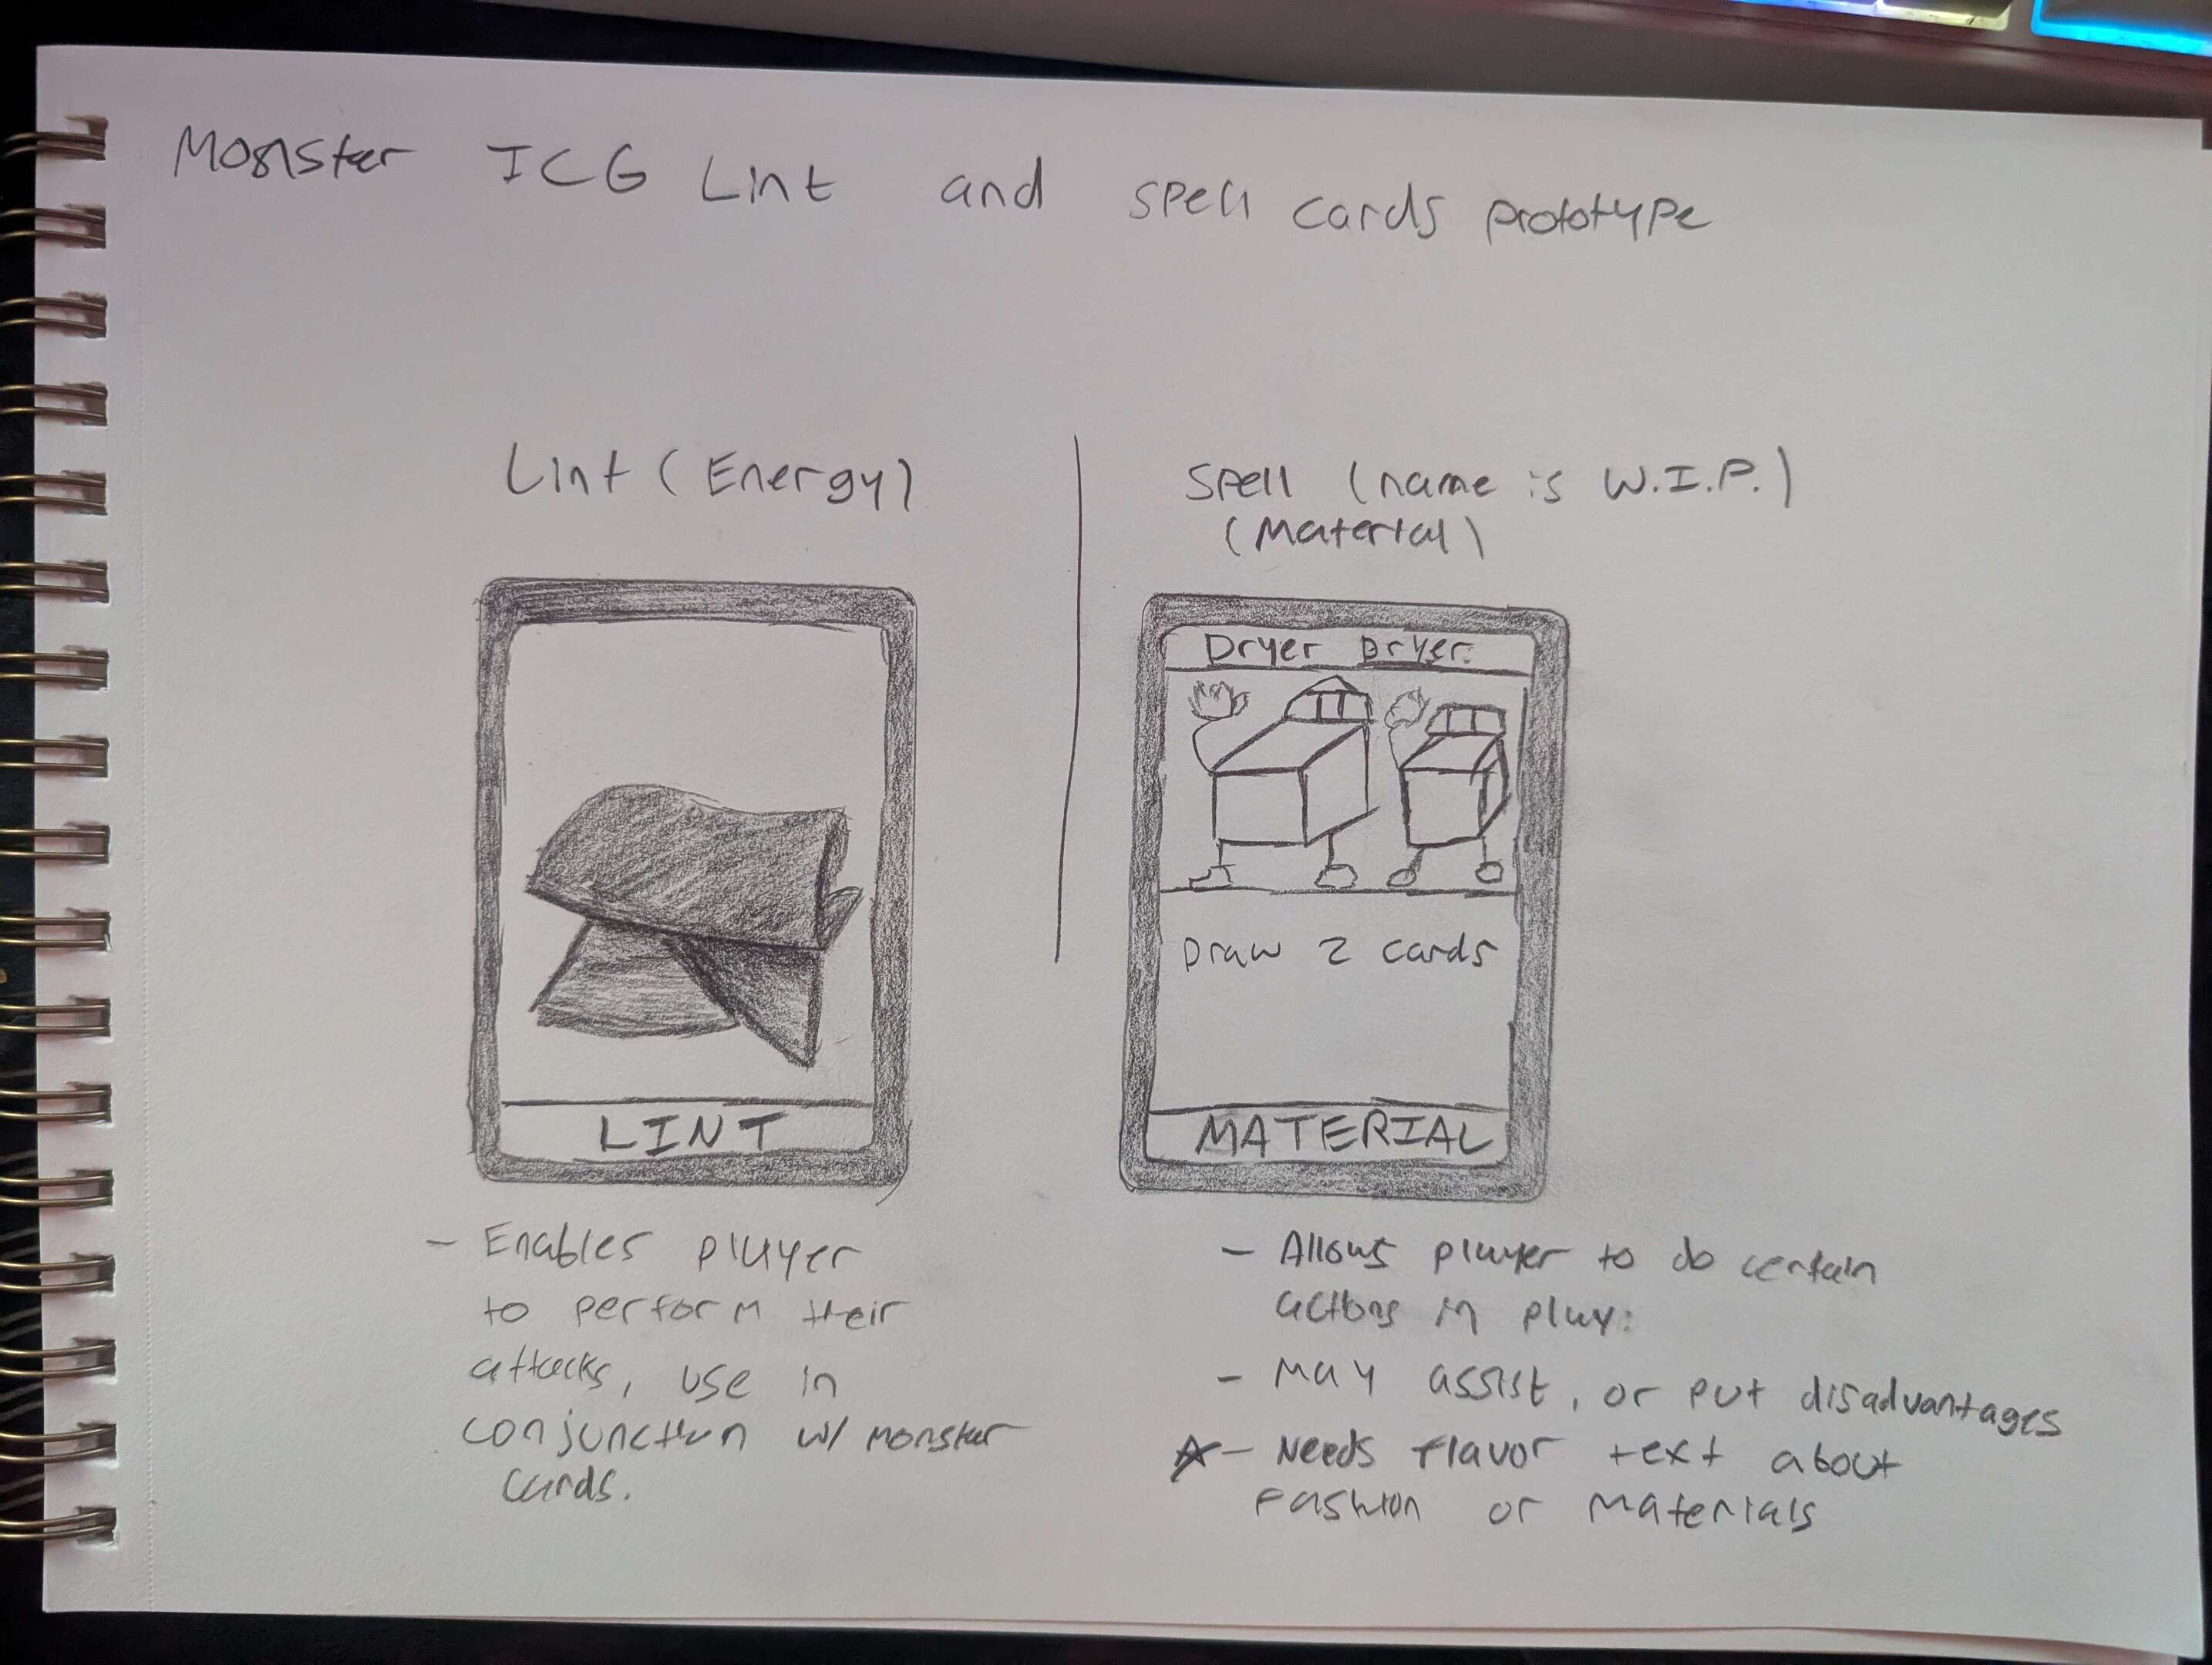 Monster ICG Lint and spell cards prototype
Lint (Energy)
Spell (name is W.I.P.)
(Material)
LINT
Dryer Dryer
Draw 2 cards
MATERIAL
- Enables player
to perform their
attacks, use in
conjunction w/ monster
cards.
- Allows player to do certain
actions in play:
- May assist, or put disadvantages
- Needs flavor text about
Fashion or Materials